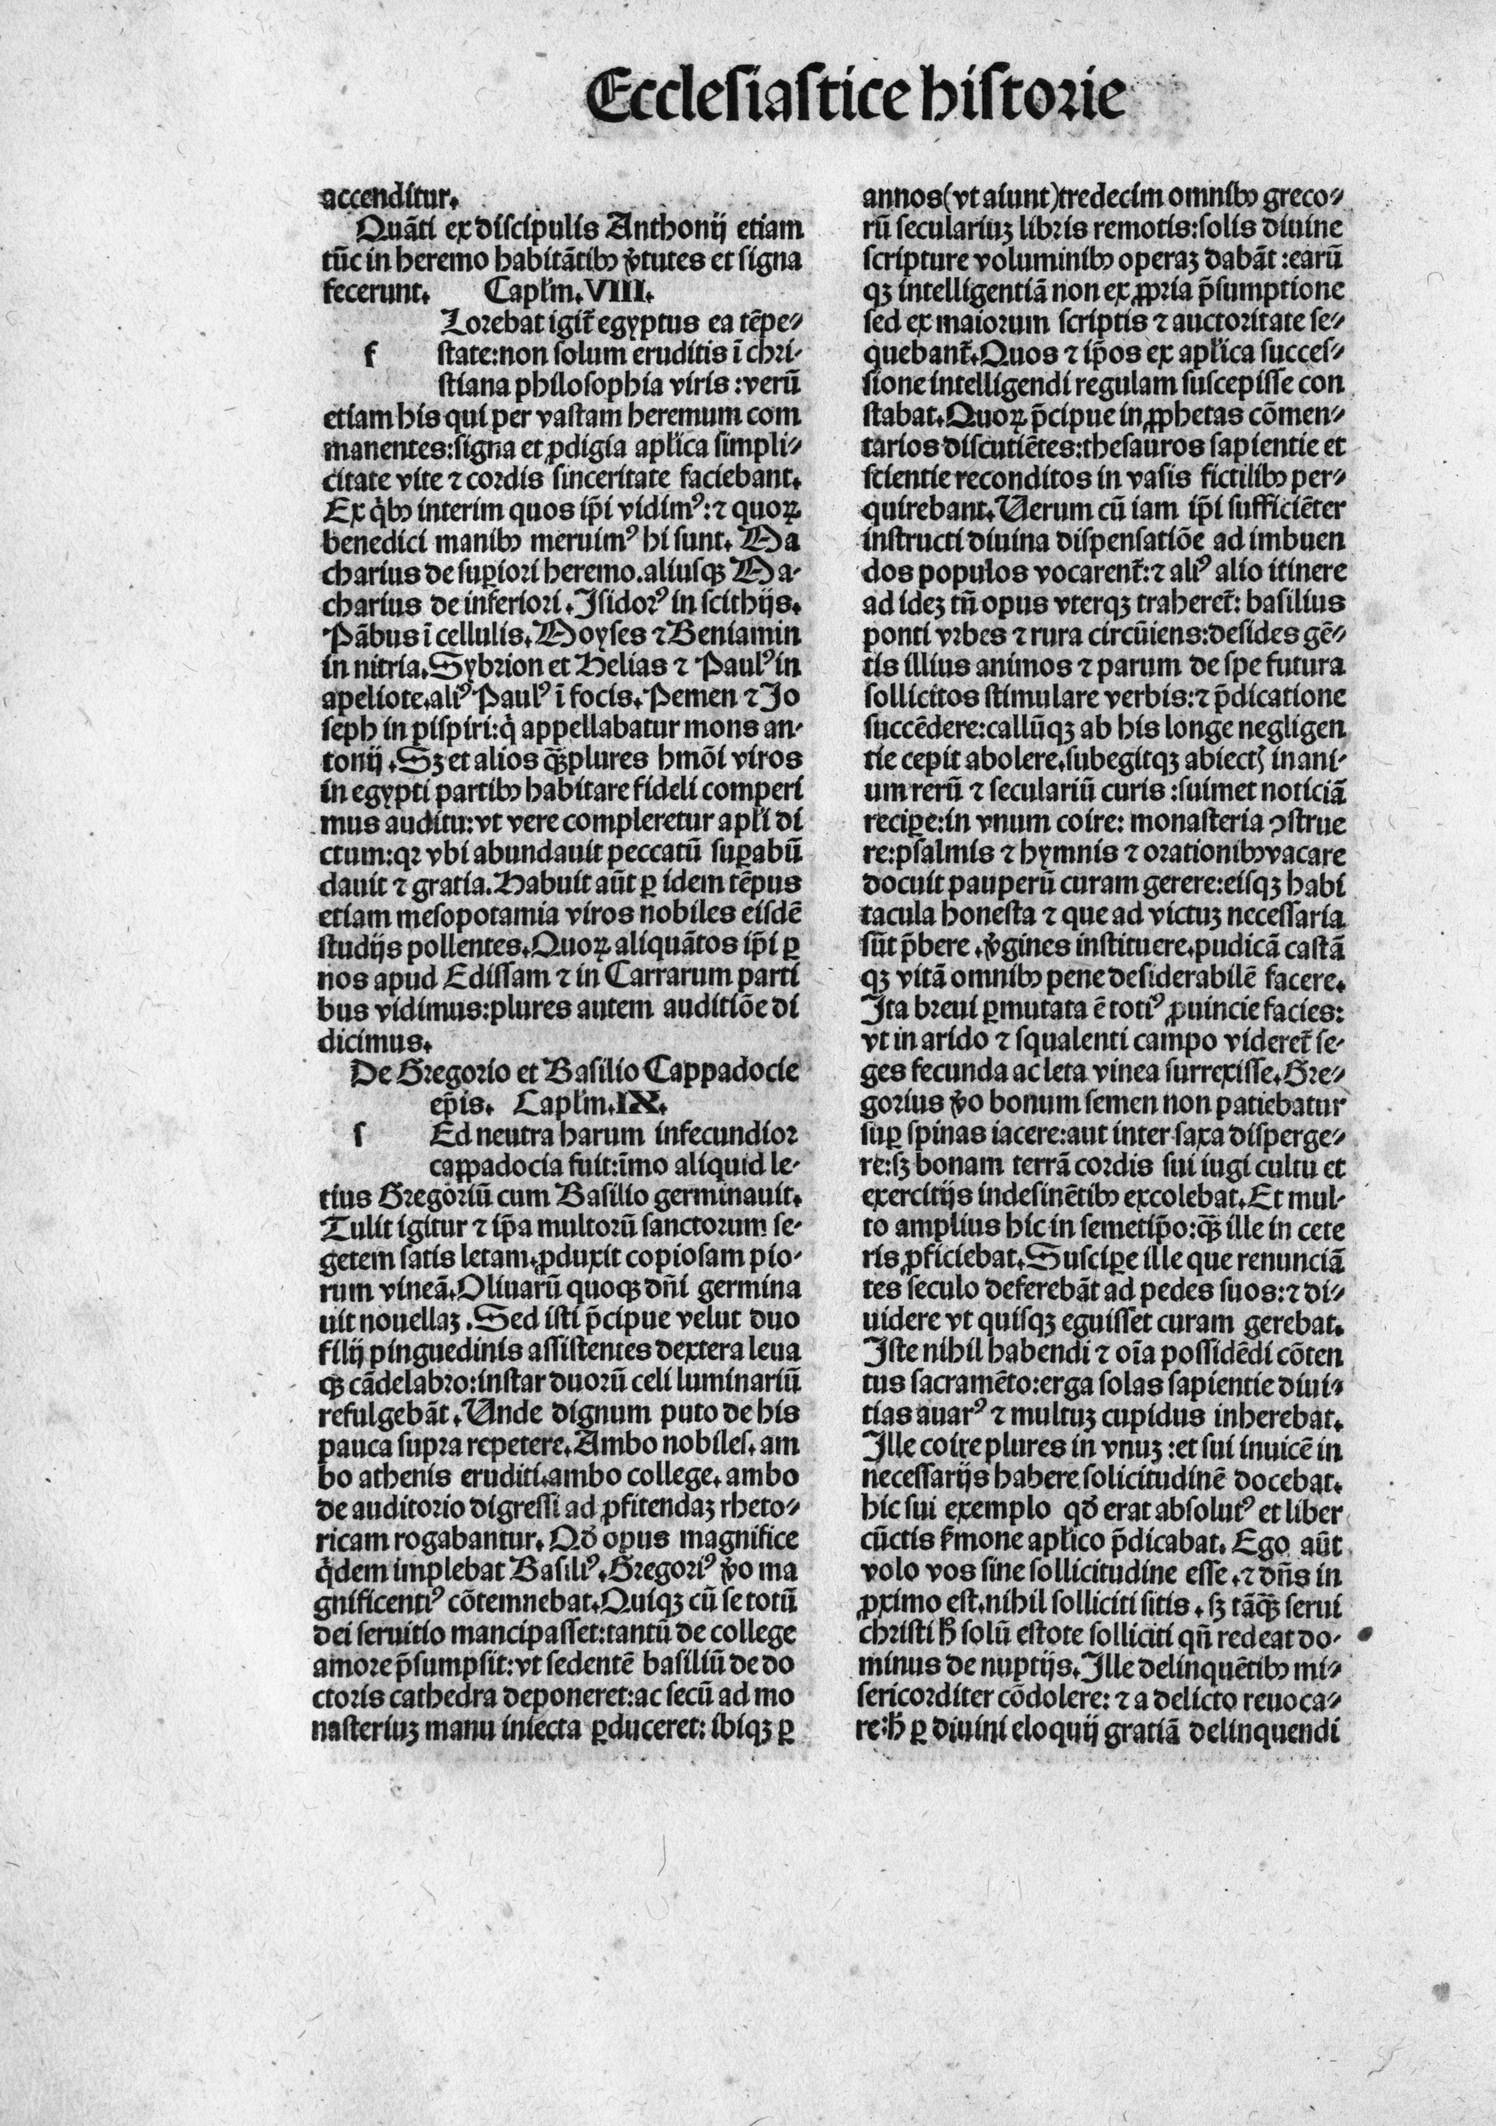 Ecclesiastice historie
accenditur.
Quãti ex discipulis Anthonij etiam
tũc in heremo habitãtibꝰ v̾tutes et signa
fecerunt. Caplm̃. VIII.
Lorebat igit̃ egyptus ea tẽpe⸗
f state:non solum eruditis ĩ chri-
stiana philosophia viris :verũ
etiam his qui per vastam heremum com
manentes:signa et ꝓdigia aplica simpli⸗
citate vite ⁊ cordis sinceritate faciebant.
Ex q̇bꝰ interim quos ip̃i vidimꝰ:⁊ quoꝝ
benedici manibꝰ meruimꝰ hi sunt. Ma
charius de suꝑiori heremo. aliusqꝫ Ma-
charius de inferiori. Isidorꝰ in scithijs.
Pãbus ĩ cellulis. Moyses ⁊ Beniamin
in nitria. Sybrion et Helias ⁊ Paulꝰ in
apeliote. aliꝰ Paulꝰ ĩ focis. Pemen ⁊ Jo
seph in pispiri:q̇ appellabatur mons an-
tonij. Sꝫ et alios qꝫ̃plures hmõi viros
in egypti partibꝰ habitare fideli comperi
mus auditu:vt vere compleretur apli di
ctum:qꝛ vbi abundauit peccatũ suꝑabũ
dauit ⁊ gratia. Habuit aũt ꝑ idem tẽpus
etiam mesopotamia viros nobiles eisdẽ
studijs pollentes. Quoꝝ aliquãtos ip̃i ꝑ
nos apud Edissam ⁊ in Carrarum parti
bus vidimus:plures autem auditiõe di
dicimus.
De Gregorio et Basilio Cappadocie
ep̃is. Caplm̃. IX.
s Ed neutra harum infecundior
cappadocia fuit:ĩmo aliquid le-
tius Gregoriũ cum Basilio germinauit.
Tulit igitur ⁊ ip̃a multorũ sanctorum se-
getem satis letam. ꝓduxit copiosam pio-
rum vineã. Oliuarũ quoqꝫ dñi germina
uit nouellaꝫ. Sed isti p̃cipue velut duo
filij pinguedinis assistentes dextera leua
qꝫ cãdelabro:instar duorũ celi luminariũ
refulgebãt. Unde dignum puto de his
pauca supra repetere. Ambo nobiles. am
bo athenis eruditi. ambo college. ambo
de auditorio digressi ad ꝓfitendaꝫ rheto⸗
ricam rogabantur. Qđ opus magnifice
q̇dem implebat Basiliꝰ. Gregoriꝰ v̾o ma
gnificentiꝰ cõtemnebat. Quiqꝫ cũ se totũ
dei seruitio mancipasset:tantũ de college
amore p̃sumpsit:vt sedentẽ basiliũ de do
ctoris cathedra deponeret:ac secũ ad mo
nasteriuꝫ manu iniecta ꝑduceret: ibiqꝫ ꝑ
annos (vt aiunt) tredecim omnibꝰ greco⸗
rũ seculariuꝫ libris remotis:solis diuine
scripture voluminibꝰ operaꝫ dabãt :earũ
qꝫ intelligentiã non ex ꝓpria p̃sumptione
sed ex maiorum scriptis ⁊ auctoritate se⸗
quebant̃. Quos ⁊ ip̃os ex aplica succes⸗
sione intelligendi regulam suscepisse con
stabat. Quoꝝ p̃cipue in ꝓphetas cõmen⸗
tarios discutiẽtes:thesauros sapientie et
scientie reconditos in vasis fictilibꝰ per⸗
quirebant. Uerum cũ iam ip̃i sufficiẽter
instructi diuina dispensatiõe ad imbuen
dos populos vocarent̃:⁊ aliꝰ alio itinere
ad ideꝫ tñ opus vterqꝫ traheret̃: basilius
ponti vrbes ⁊ rura circũiens:desides gẽ⸗
tis illius animos ⁊ parum de spe futura
sollicitos stimulare verbis:⁊ p̃dicatione
succẽdere:callũqꝫ ab his longe negligen
tie cepit abolere. subegitqꝫ abiectꝭ inani-
um rerũ ⁊ seculariũ curis :suimet noticiã
reciꝑe:in vnum coire: monasteria ꝯstrue
re:psalmis ⁊ hymnis ⁊ orationibꝰ vacare
docuit pauperũ curam gerere:eisqꝫ habi
tacula honesta ⁊ que ad victuꝫ necessaria
sũt p̃bere. v̾gines instituere. pudicã castã
qꝫ vitã omnibꝰ pene desiderabilẽ facere.
Ita breui ꝑmutata ẽ totiꝰ ꝓuincie facies:
vt in arido ⁊ squalenti campo videret̃ se-
ges fecunda ac leta vinea surrexisse. Gre⸗
gorius v̾o bonum semen non patiebatur
suꝑ spinas iacere:aut inter saxa disperge⸗
re:sꝫ bonam terrã cordis sui iugi cultu et
exercitijs indesinẽtibꝰ excolebat. Et mul-
to amplius hic in semetip̃o:qꝫ̃ ille in cete
ris ꝓficiebat. Susciꝑe ille que renunciã
tes seculo deferebãt ad pedes suos:⁊ di⸗
uidere vt quisqꝫ eguisset curam gerebat.
Iste nihil habendi ⁊ oĩa possidẽdi cõten
tus sacramẽto:erga solas sapientie diui⸗
tias auarꝰ ⁊ multuꝫ cupidus inherebat.
Ille coire plures in vnuꝫ :et sui inuicẽ in
necessarijs habere solicitudinẽ docebat.
hic sui exemplo qđ erat absolutꝰ et liber
cũctis s̾mone aplico p̃dicabat. Ego aũt
volo vos sine sollicitudine esse. ⁊ dñs in
ꝓximo est. nihil solliciti sitis. sꝫ tãqꝫ̃ serui
christi h̾ solũ estote solliciti qñ redeat do-
minus de nuptijs. Ille delinquẽtibꝰ mi⸗
sericorditer cõdolere: ⁊ a delicto reuoca⸗
re:h̾ ꝑ diuini eloquij gratiã delinquendi